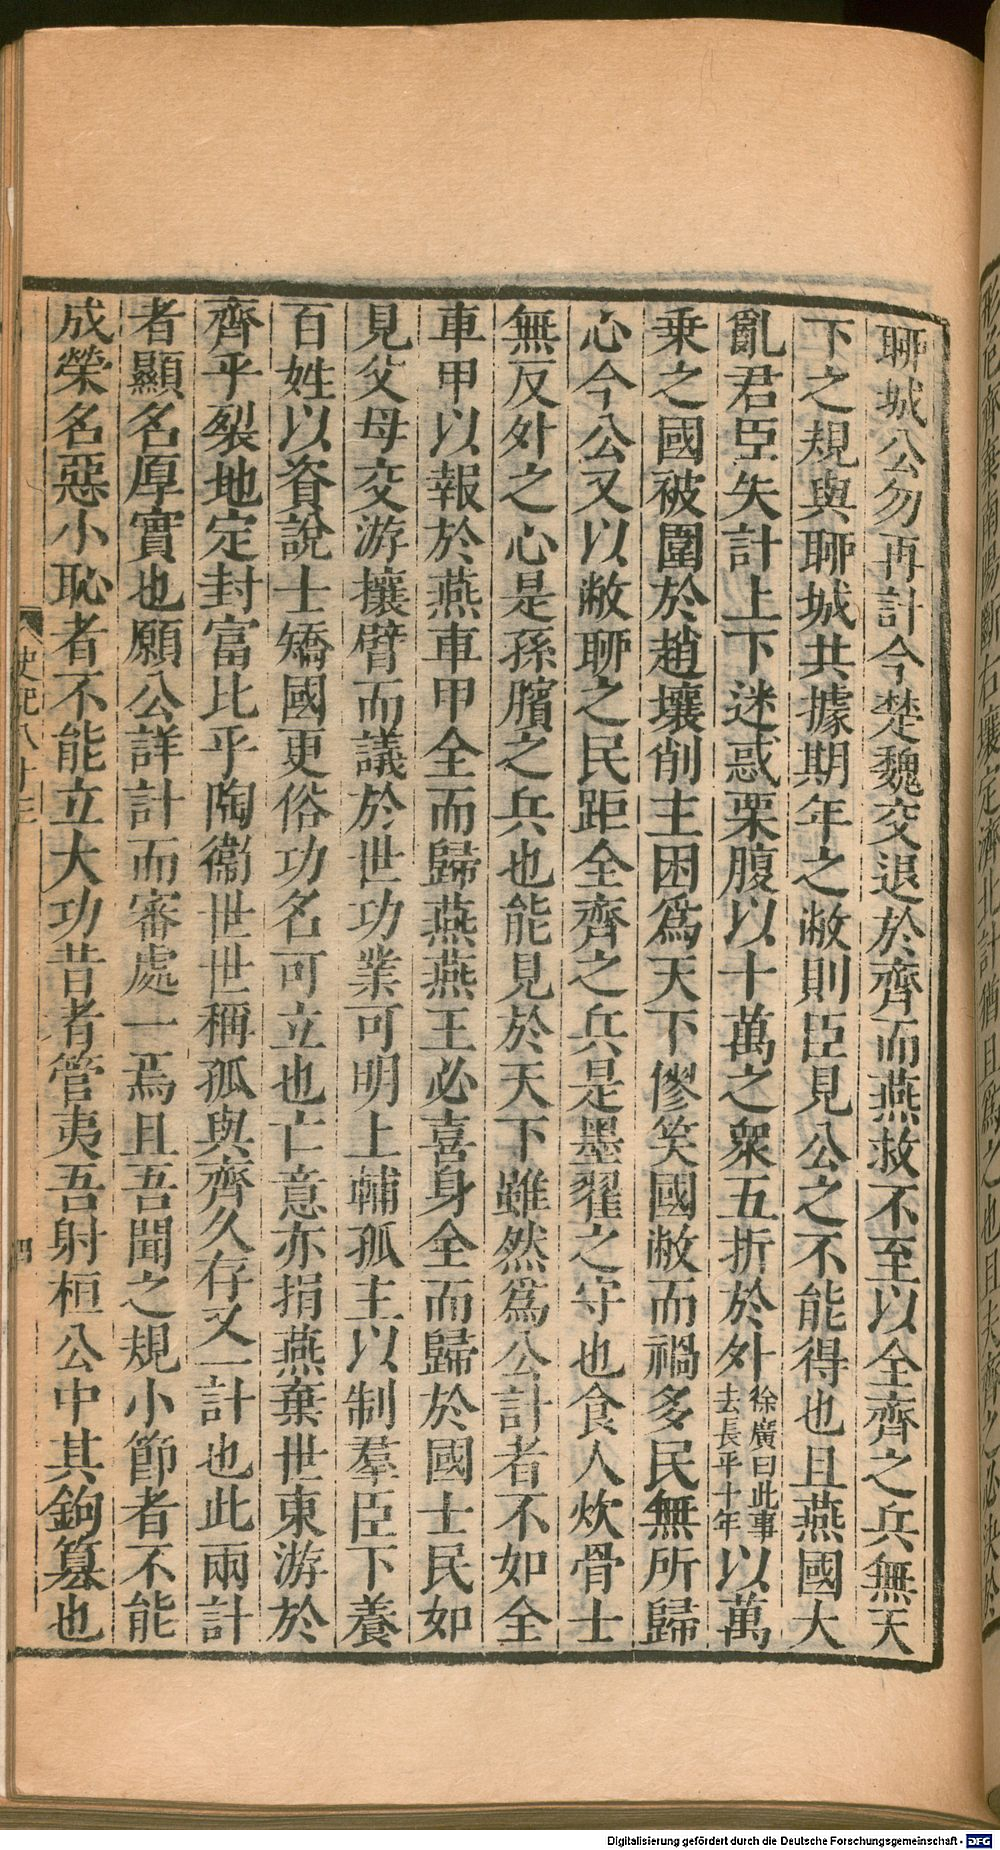 聊城公勿再計今楚魏交退於齊而燕救不至以全齊之兵無天
下之規與聊城共據期年之敝則臣見公之不能得也且燕國大
亂君臣失計上下迷惑栗腹以十萬之眾五折於外徐廣曰此事去長平十年以萬
乗之國被圍於趙壤削主困爲天下僇笑國敝而禍多民無所歸
心今公又以敝聊之民距全齊之兵是墨翟之守也食人炊骨士
無反外之心是孫臏之兵也能見於天下雖然爲公計者不如全
車甲以報於燕車甲全而歸燕燕王必喜身全而歸於國士民如
見父母交游攘臂而議於世功業可明上輔孤主以制羣臣下養
百姓以資說士矯國更俗功名可立也亡意亦捐燕棄世東游於
齊乎裂地定封富比乎陶衞世世稱孤與齊久存又一計也此兩計
者顯名厚實也願公詳計而審處一焉且吾聞之規小節者不能
成榮名惡小恥者不能立大功昔者管夷吾射桓公中其鉤篡也
史記八十三
四
Digitalisierung gefördert durch die Deutsche Forschungsgemeinschaft - DFG